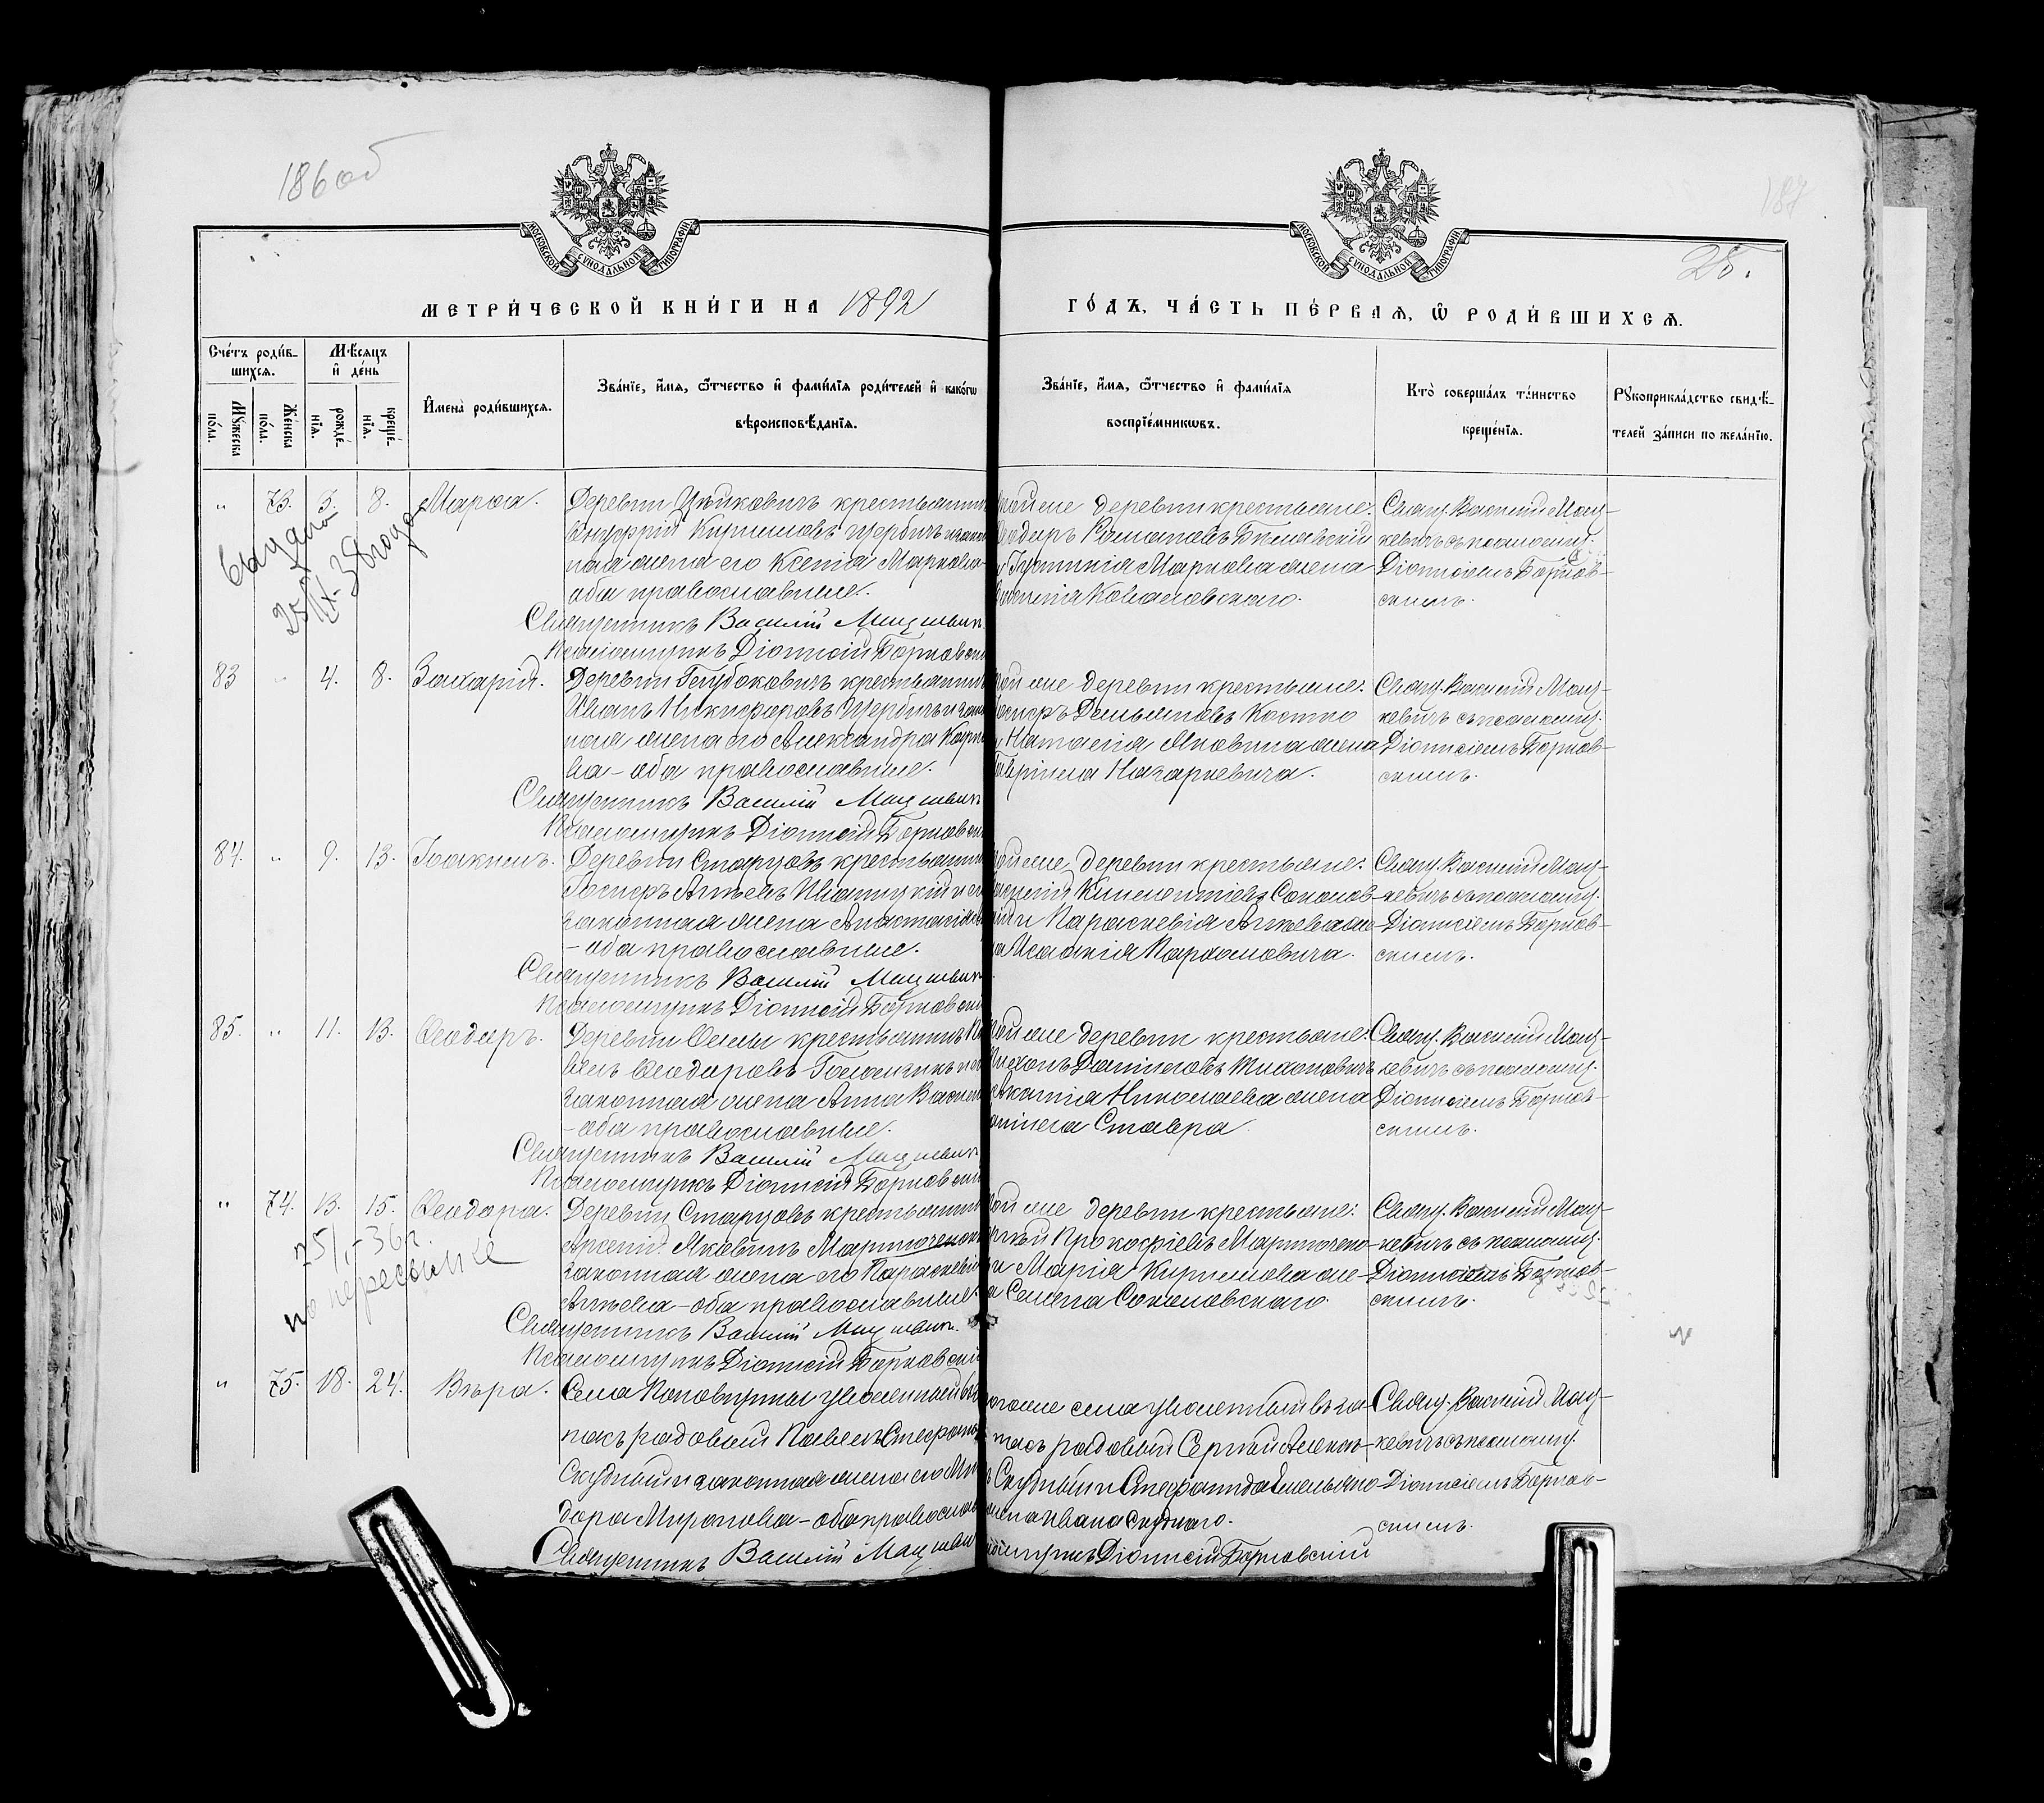 186об
187
28.
МОСКОВСКОЙ СУНОДАЛЬНОЙ ТИПОГРАФІИ
МОСКОВСКОЙ СУНОДАЛЬНОЙ ТИПОГРАФІИ
МЕТРИ́ЧЕСКОЙ КНИ́ГИ НА 1892
ГО́ДЪ, ЧА́СТЬ ПЕ́РВАѦ, Ѡ РОДИ́ВШИХСѦ.
Сче́тъ роди́в-
шихсѧ.
Мꙋжеска по́ла.
Же́нска по́ла.
Мѣ́сѧцъ
и де́нь
рожде́-нїѧ.
креще́-нїѧ.
Имена̀ роди́вшихсѧ.
Зва́нїе, и́мѧ, ѻ҆́тчество и фами́лїѧ роди́телей и како́гѡ
вѣроисповѣ́данїѧ.
Зва́нїе, и́мѧ, ѻ҆́тчество и фами́лїѧ
воспрїе́мникѡвъ.
Кто̀ соверша́лъ та́инство
креще́нїѧ.
Рꙋкоприкла́дство свидѣ́-
телей за́писи по жела́нїю.
" 73. 3. 8. Марѳа.
Деревни крестьянин
Кириловъ Щербичъ и закон
ная жена его Ксенія Маркова
оба православные.
Священникъ Василій Мацкевич
Псаломщикъ Діонисій Борковский
той же деревни крестьяне:
Ѳеодоръ Романовъ
и Маркова жена
Ковалевскаго.
Свящ. Василій Мац-
кевичъ съ псаломщ.
Діонисіемъ Борков-
скимъ.
выдана
25/IX-38 года
83 " 4. 8. Захарія.
Деревни Глубоковичъ крестьянинъ
Иванъ Никифоровъ Щербичъ и закон
ная жена его Александра Карпо
ва - оба православные.
Священникъ Василій Мацкевич
Псаломщикъ Діонисій Борковский
той же деревни крестьяне:
Демьяновъ Костко
и Наталія Яковлева жена
Гавріила Назаркевича.
Свящ. Василій Мац-
кевичъ съ псаломщ.
Діонисіемъ Борков-
скимъ.
84. " 9. 13. Іоакимъ.
Деревни Старцовъ крестьянин
и его
законная жена Анастасія
- оба православные.
Священникъ Василій Мацкевич
Псаломщикъ Діонисій Борковский
той же деревни крестьяне:
Климентіевъ Соколов-
и Параскевія жена
Исаакія Пархомовича.
Свящ. Василій Мац-
кевичъ съ псаломщ.
Діонисіемъ Борков-
скимъ.
85. " 11. 13. Ѳеодоръ.
Деревни крестьянинъ Па
велъ Ѳеодоровъ и его
законная жена Анна Василь
- оба православные.
Священникъ Василій Мацкевич
Псаломщикъ Діонисій Борковский
той же деревни крестьяне:
Тихонъ Даниловъ Тихоновичъ
Николаева жена
Даніила Ставра
Свящ. Василій Мац-
кевичъ съ псаломщ.
Діонисіемъ Борков-
скимъ.
" 74. 13. 15. Ѳеодора.
Деревни Старцовъ крестьянин
Арсеній Яковлевъ Мартюченок
законная жена его Параскевія
- оба православные.
Священникъ Василій Мацкевич.
Псаломщикъ Діонисій Борковский
той же деревни крестьяне:
Прокофіевъ Мартючено-
и Марія Кирилова же-
на Семена Соколовскаго.
Свящ. Василій Мац-
кевичъ съ псаломщ.
Діонисіемъ Борков-
скимъ.
25/I-36г.
по пересылке
" 75. 18. 24. Вѣра.
Села уволенный въ
пасъ рядовой Павелъ Стефанов
Скудный и законная жена его Ми
дора Миронова - оба православ
Священникъ Василій Мацкевич
тогоже села уволенный въ за-
пасъ рядовый Сергѣй
Скудный и Стефанида Емельяно-
жена Ивана Скуднаго.
Псаломщикъ Діонисій Борковскій
Свящ. Василій Мац-
кевичъ съ псаломщ.
Діонисіемъ Борков-
скимъ.